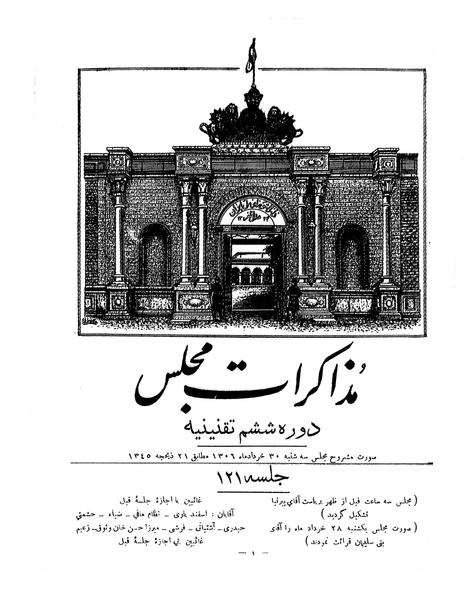 مذاکرات مجلس
دوره ششم تقنینیه
صورت مشروح مجلس سه شنبه ۳۰ خردادماه ۱۳۰۶ مطابق ۲۱ ذیحجه ۱۳۴۵
جلسه ۱۲۱
( مجلس سه ساعت قبل از ظهر بریاست آقای پیرنیا
تشکیل گردید )
( صورت مجلس یکشنبه ۲۸ خرداد ماه را آقای
بنی سلیمان قرائت نمودند )
غائبین با اجازهٔ جلسهٔ قبل
آقایان : اسفند یاری ـ نظام مافی ـ ضیاء ـ حشمتی
حیدری ـ آشتیانی ـ فرشی ـ میرزا حسن خان وثوق ـ زعیم
غائبین بی اجازهٔ جلسهٔ قبل
— ۱ —